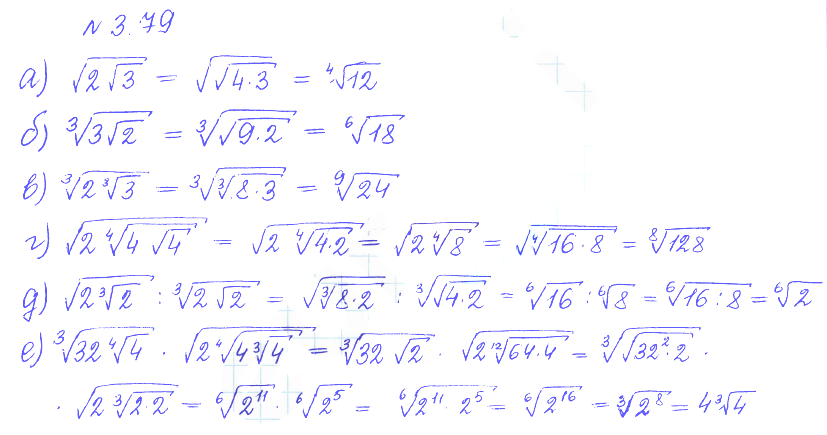 № 3.79
а) √(2√3) = √(√(4·3)) = ⁴√12
б) ³√(3√2) = ³√(√(9·2)) = ⁶√18
в) ³√(2³√3) = ³√(³√(8·3)) = ⁹√24
г) √(2⁴√(4√4)) = √(2⁴√(4·2)) = √(2⁴√8) = √(⁴√(16·8)) = ⁸√128
д) √(2³√2) : ³√(2√2) = √(³√(8·2)) : ³√(√(4·2)) = ⁶√16 : ⁶√8 = ⁶√(16:8) = ⁶√2
е) ³√(32⁴√4) · √(2⁴√(4³√4)) = ³√(32√2) · √(2¹²√(64·4)) = ³√(√(32²·2)) ·
· √(2³√(2·2)) = ⁶√(2¹¹) · ⁶√(2⁵) = ⁶√(2¹¹·2⁵) = ⁶√(2¹⁶) = ³√(2⁸) = 4³√4